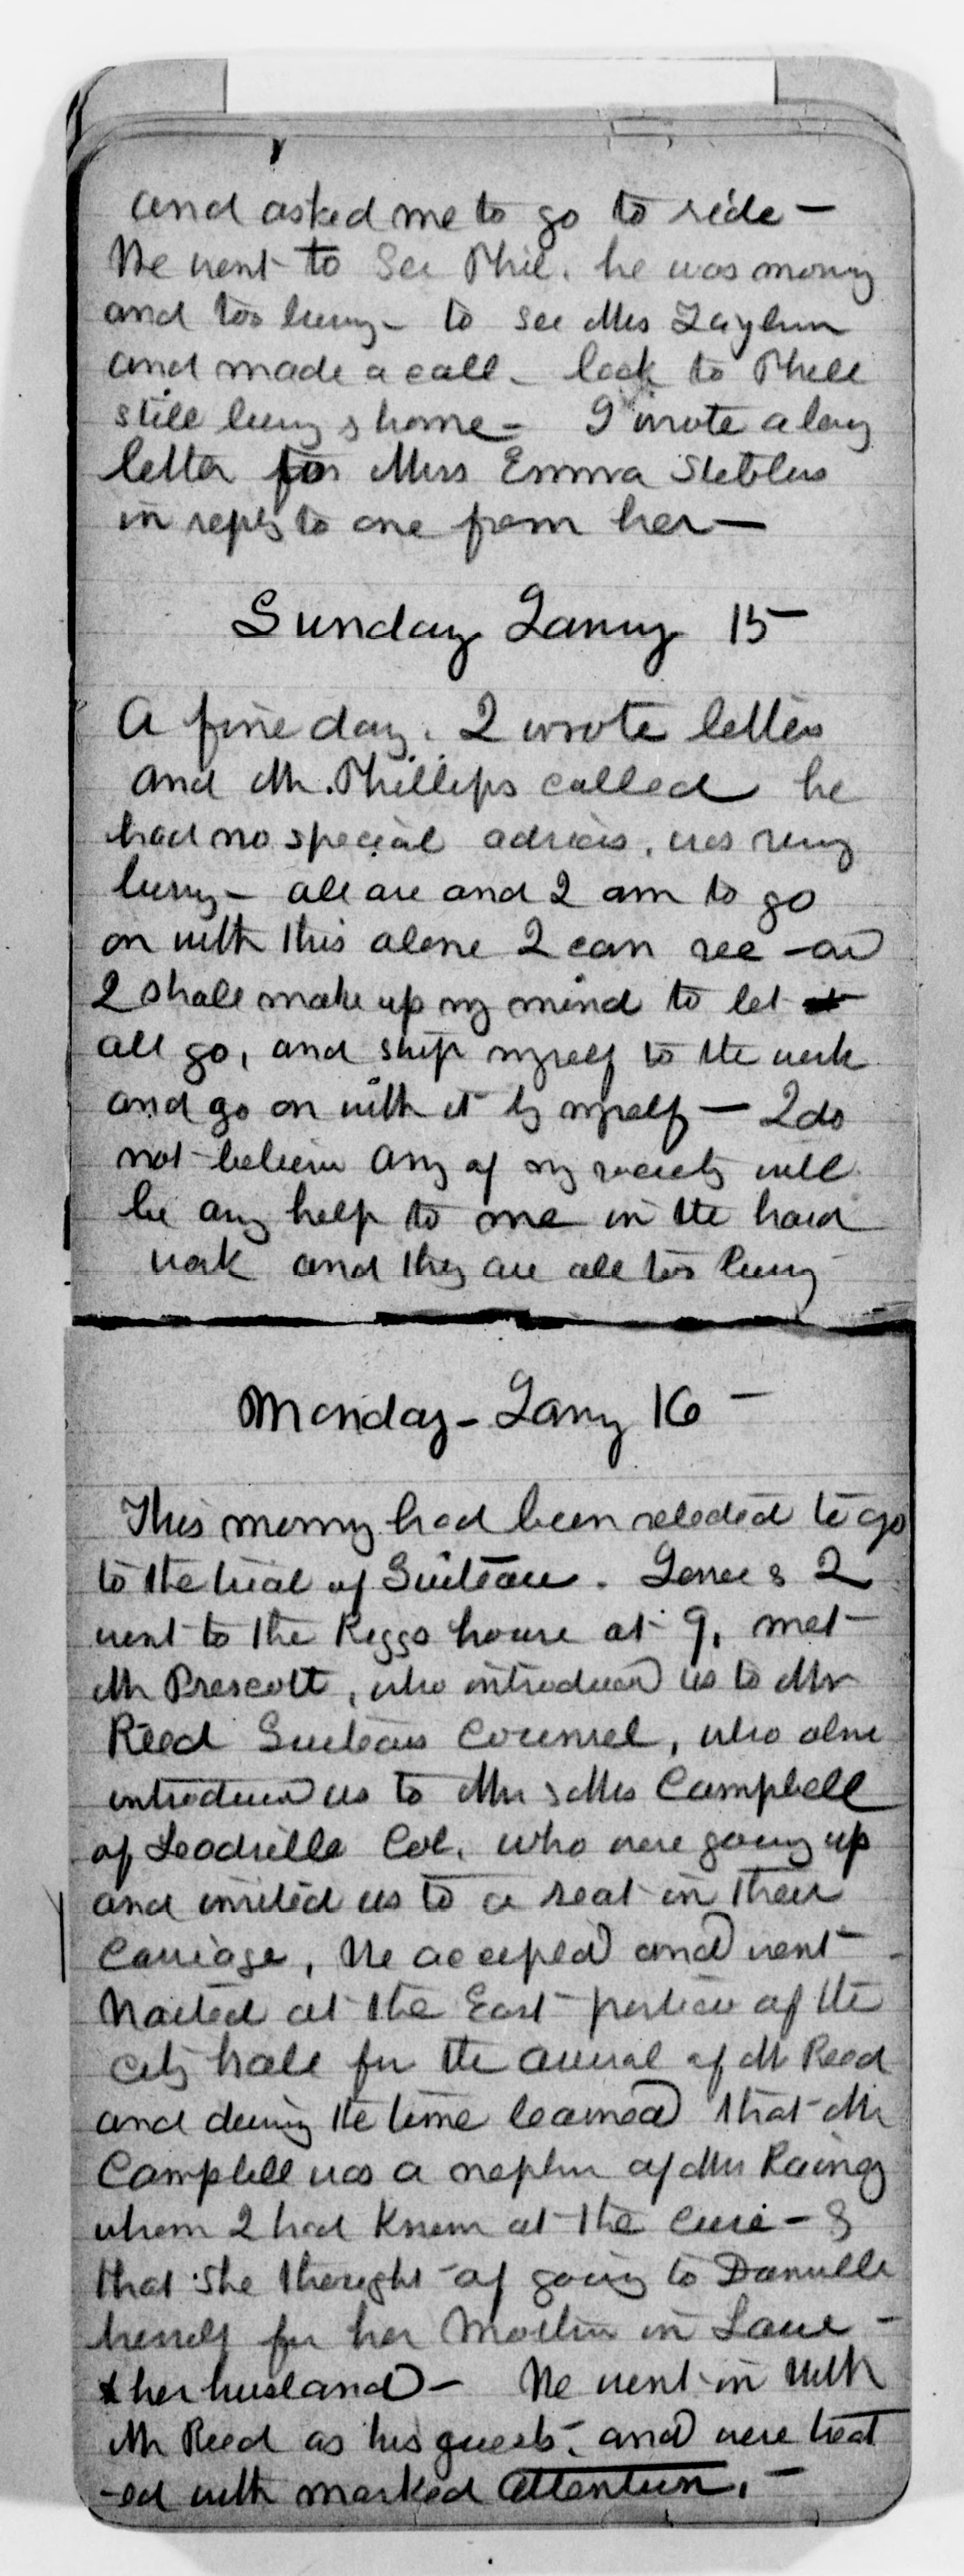 and asked me to go to ride —
We went to see Phil. he was moving
and too busy – to see Mrs
and made a call – back to Phill
still busy & home – I wrote a long
letter for Miss Emma
in reply to one from her —
Sunday Jany 15
A fine day. I wrote letters
and Mr. Phillips called he
had no special advices, was very
busy – all are and I am to go
on with this alone I can see – and
I shall make up my mind to let it
all go, and strip myself to the work
and go on with it by myself — I do
not believe any of my society will
be any help to me in the hard
work and they are all too busy
Monday – Jany 16 –
This morng had been selected to go
to the trial of Guiteau. & I
went to the Riggs house at 9, met
Mr Prescott, who introduced us to Mr
Reed Guiteaus Counsel, who also
introduced us to Mr & Mrs Campbell
of Leadville Col. who were going up
and invited us to a seat in their
Carriage, We accepted and went
Waited at the East portico of the
city hall for the arrival of Mr Reed
and during the time learned that Mr
Campbell was a nephew of Mrs
whom I had known at the Cure – &
that she thought of going to Dansville
herself for her Mother in Law –
& her husband – We went in with
Mr Reed as his guests, and were treat
-ed with marked attention. –